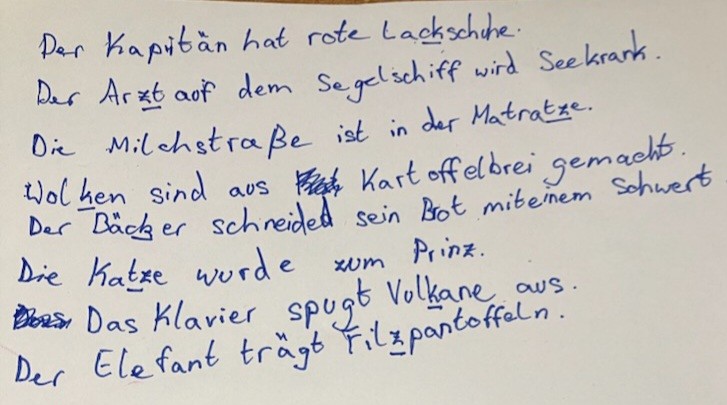 Der Kapitän hat rote Lackschuhe.
Der Arzt auf dem Segelschiff wird Seekrank.
Die Milchstraße ist in der Matratze.
Wolken sind aus Kartoffelbrei gemacht.
Der Bäcker schneided sein Brot miteinem Schwert
Die Katze wurde zum Prinz.
Das Klavier spugt Volkane aus.
Der Elefant trägt Filzpantoffeln.